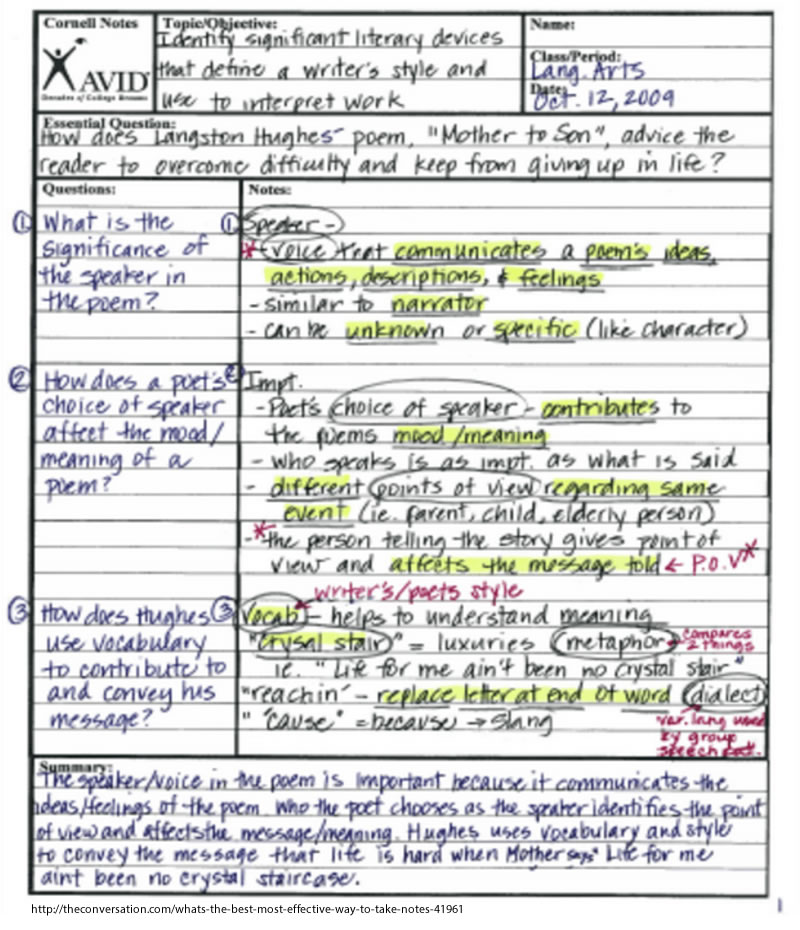 Cornell Notes
AVID
Decades of College Dreams
Topic/Objective:
Identify significant literary devices
that define a writer's style and
use to interpret work
Name:
Class/Period:
Lang. Arts
Date:
Oct. 12, 2009
Essential Question:
How does Langston Hughes' poem, "Mother to Son", advice the
reader to overcome difficulty and keep from giving up in life?
Questions:
① What is the
significance of
the speaker in
the poem?
② How does a poet's
choice of speaker
affect the mood/
meaning of a
poem?
③ How does Hughes
use vocabulary
to contribute to
and convey his
message?
Notes:
① Speaker -
* voice that communicates a poem's ideas,
actions, descriptions, & feelings
- similar to narrator
- can be unknown or specific (like character)
② Impt.
- Poet's choice of speaker - contributes to
the poems mood/meaning
- who speaks is as impt. as what is said
- different points of view regarding same
event (ie. parent, child, elderly person)
-* the person telling the story gives point of
view and affects the message told ← P.O.V*
writer's/poets style
③ Vocab - helps to understand meaning
"crysal stair" = luxuries (metaphor) compares
2 things
ie. "Life for me ain't been no crystal stair"
"reachin' - replace letter at end of word (dialect)
" 'cause" = because → slang
var. lang used
by group
speech patt.
Summary:
The speaker/voice in the poem is important because it communicates the
ideas/feelings of the poem. Who the poet chooses as the speaker identifies the point
of view and affects the message/meaning. Hughes uses vocabulary and style
to convey the message that life is hard when Mother says" Life for me
aint been no crystal staircase.
http://theconversation.com/whats-the-best-most-effective-way-to-take-notes-41961
1